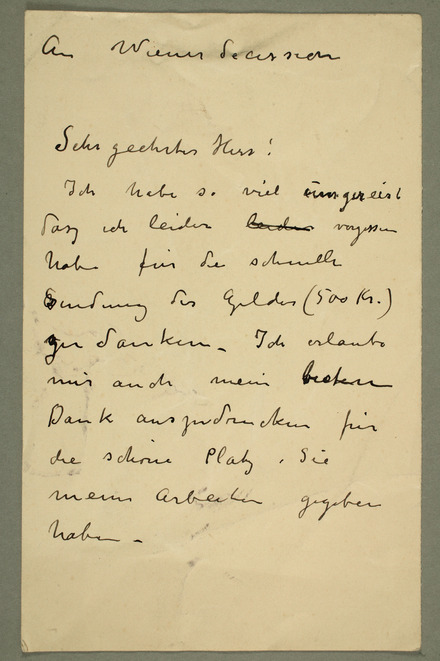 An Wiener Secession
Sehr geehrter Herr!
Ich habe so viel umgereist
dasz ich leider leider vergessen
habe für die schnelle
Sendung des Geldes (500 Kr.)
zu danken. Ich erlaube
mir auch mein besten
Dank auszudrucken für
die schöne Platz. Sie
meine Arbeiten gegeben
haben.